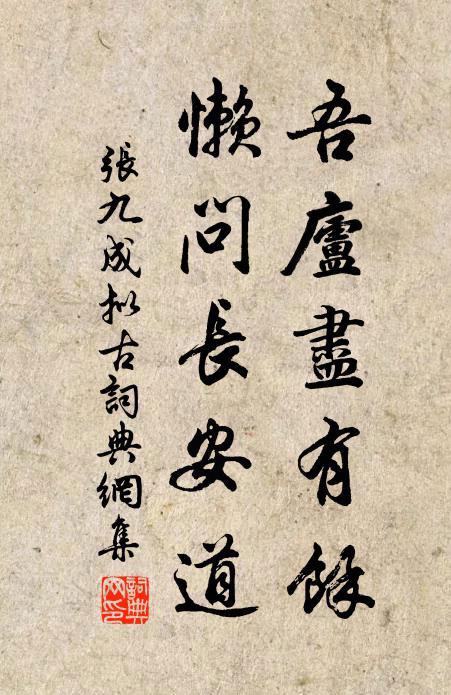 吾廬盡有餘
懶問長安道
張九成擬古詞典網集
詞典網印